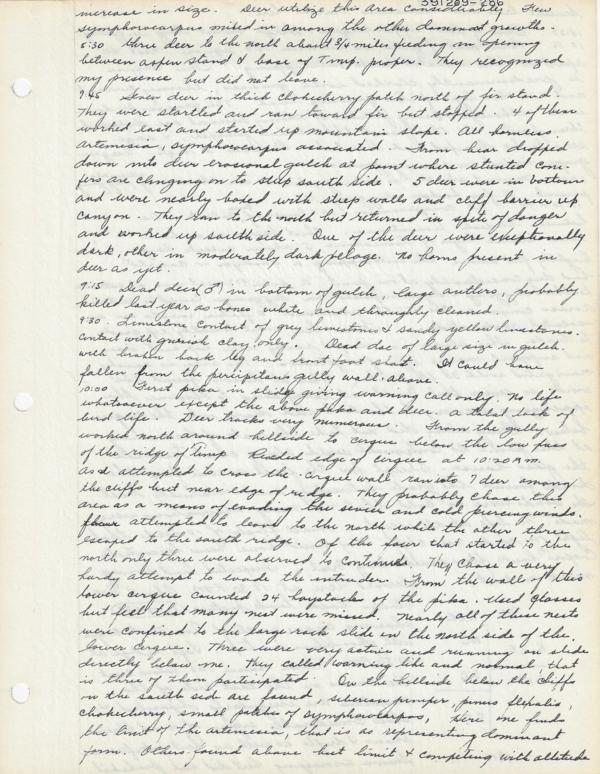 591209-266
increase in size. Deer utilize this area considerably. Few
symphorocarpus mixed in among the other dominant growths.
8:30 three deer to the north about 3/4 miles feeding in opening
between aspen stand & base of Timp. proper. They recognized
my presence but did not leave.
9:45 Seven deer in thick chokecherry patch north of fir stand.
They were startled and ran toward fir but stopped. 4 of them
worked east and started up mountain slope. All hornless.
artemesia, symphocarpus associated. From hear dropped
down into deer erosional gulch at point where stunted coni-
fers are clinging on to steep south side. 5 deer were in bottom
and were nearly boxed with steep walls and cliff barrier up
canyon. They ran to the north but returned in spite of danger
and worked up south side. One of the deer were exceptionally
dark, other in moderately dark pelage. No horns present in
deer as yet.
9:15 Dead deer (♂) in bottom of gulch, large antlers, probably
killed last year as bones white and throughly cleaned.
9:30 Limestone contact of grey limestones & sandy yellow limestones.
Contact with greenish clay, only. Dead doe of large size in gulch.
with broken back leg and front foot shot. It could have
fallen from the percipitous gully wall above.
10:00 First pika in slide giving warning call only. No life
whatsoever except the above pika and deer. A total lack of
bird life. Deer tracks very numerous. From the gully
worked north around hillside to cirque below the low pass
of the ridge of Timp. Reached edge of cirque at 10:20 A.M.
As I attempted to cross the cirque wall ran into 7 deer among
the cliffs but near edge of ridge. They probably chose this
area as a means of evading the sevier and cold piercing winds.
four attempted to leave to the north while the other three
escaped to the south ridge. Of the four that started to the
north only three were observed to continue. They chose a very
hardy attempt to evade the intruder. From the wall of this
lower cirque counted 24 haystacks of the pika. Used glasses
but feel that many nest were missed. Nearly all of these nests
were confined to the large rock slide in the north side of the
lower cirque. Three were very active and running on slide
directly below me. They called warning like and normal, that
is three of them participated. On the hillside below the cliffs
on the south sid are found, siberian juniper, pinus flexalis,
chokecherry, small patches of symphocarpos, Here one finds
the limit of the artemesia, that is as representing dominant
form. Others found above but limit & competing with altitude